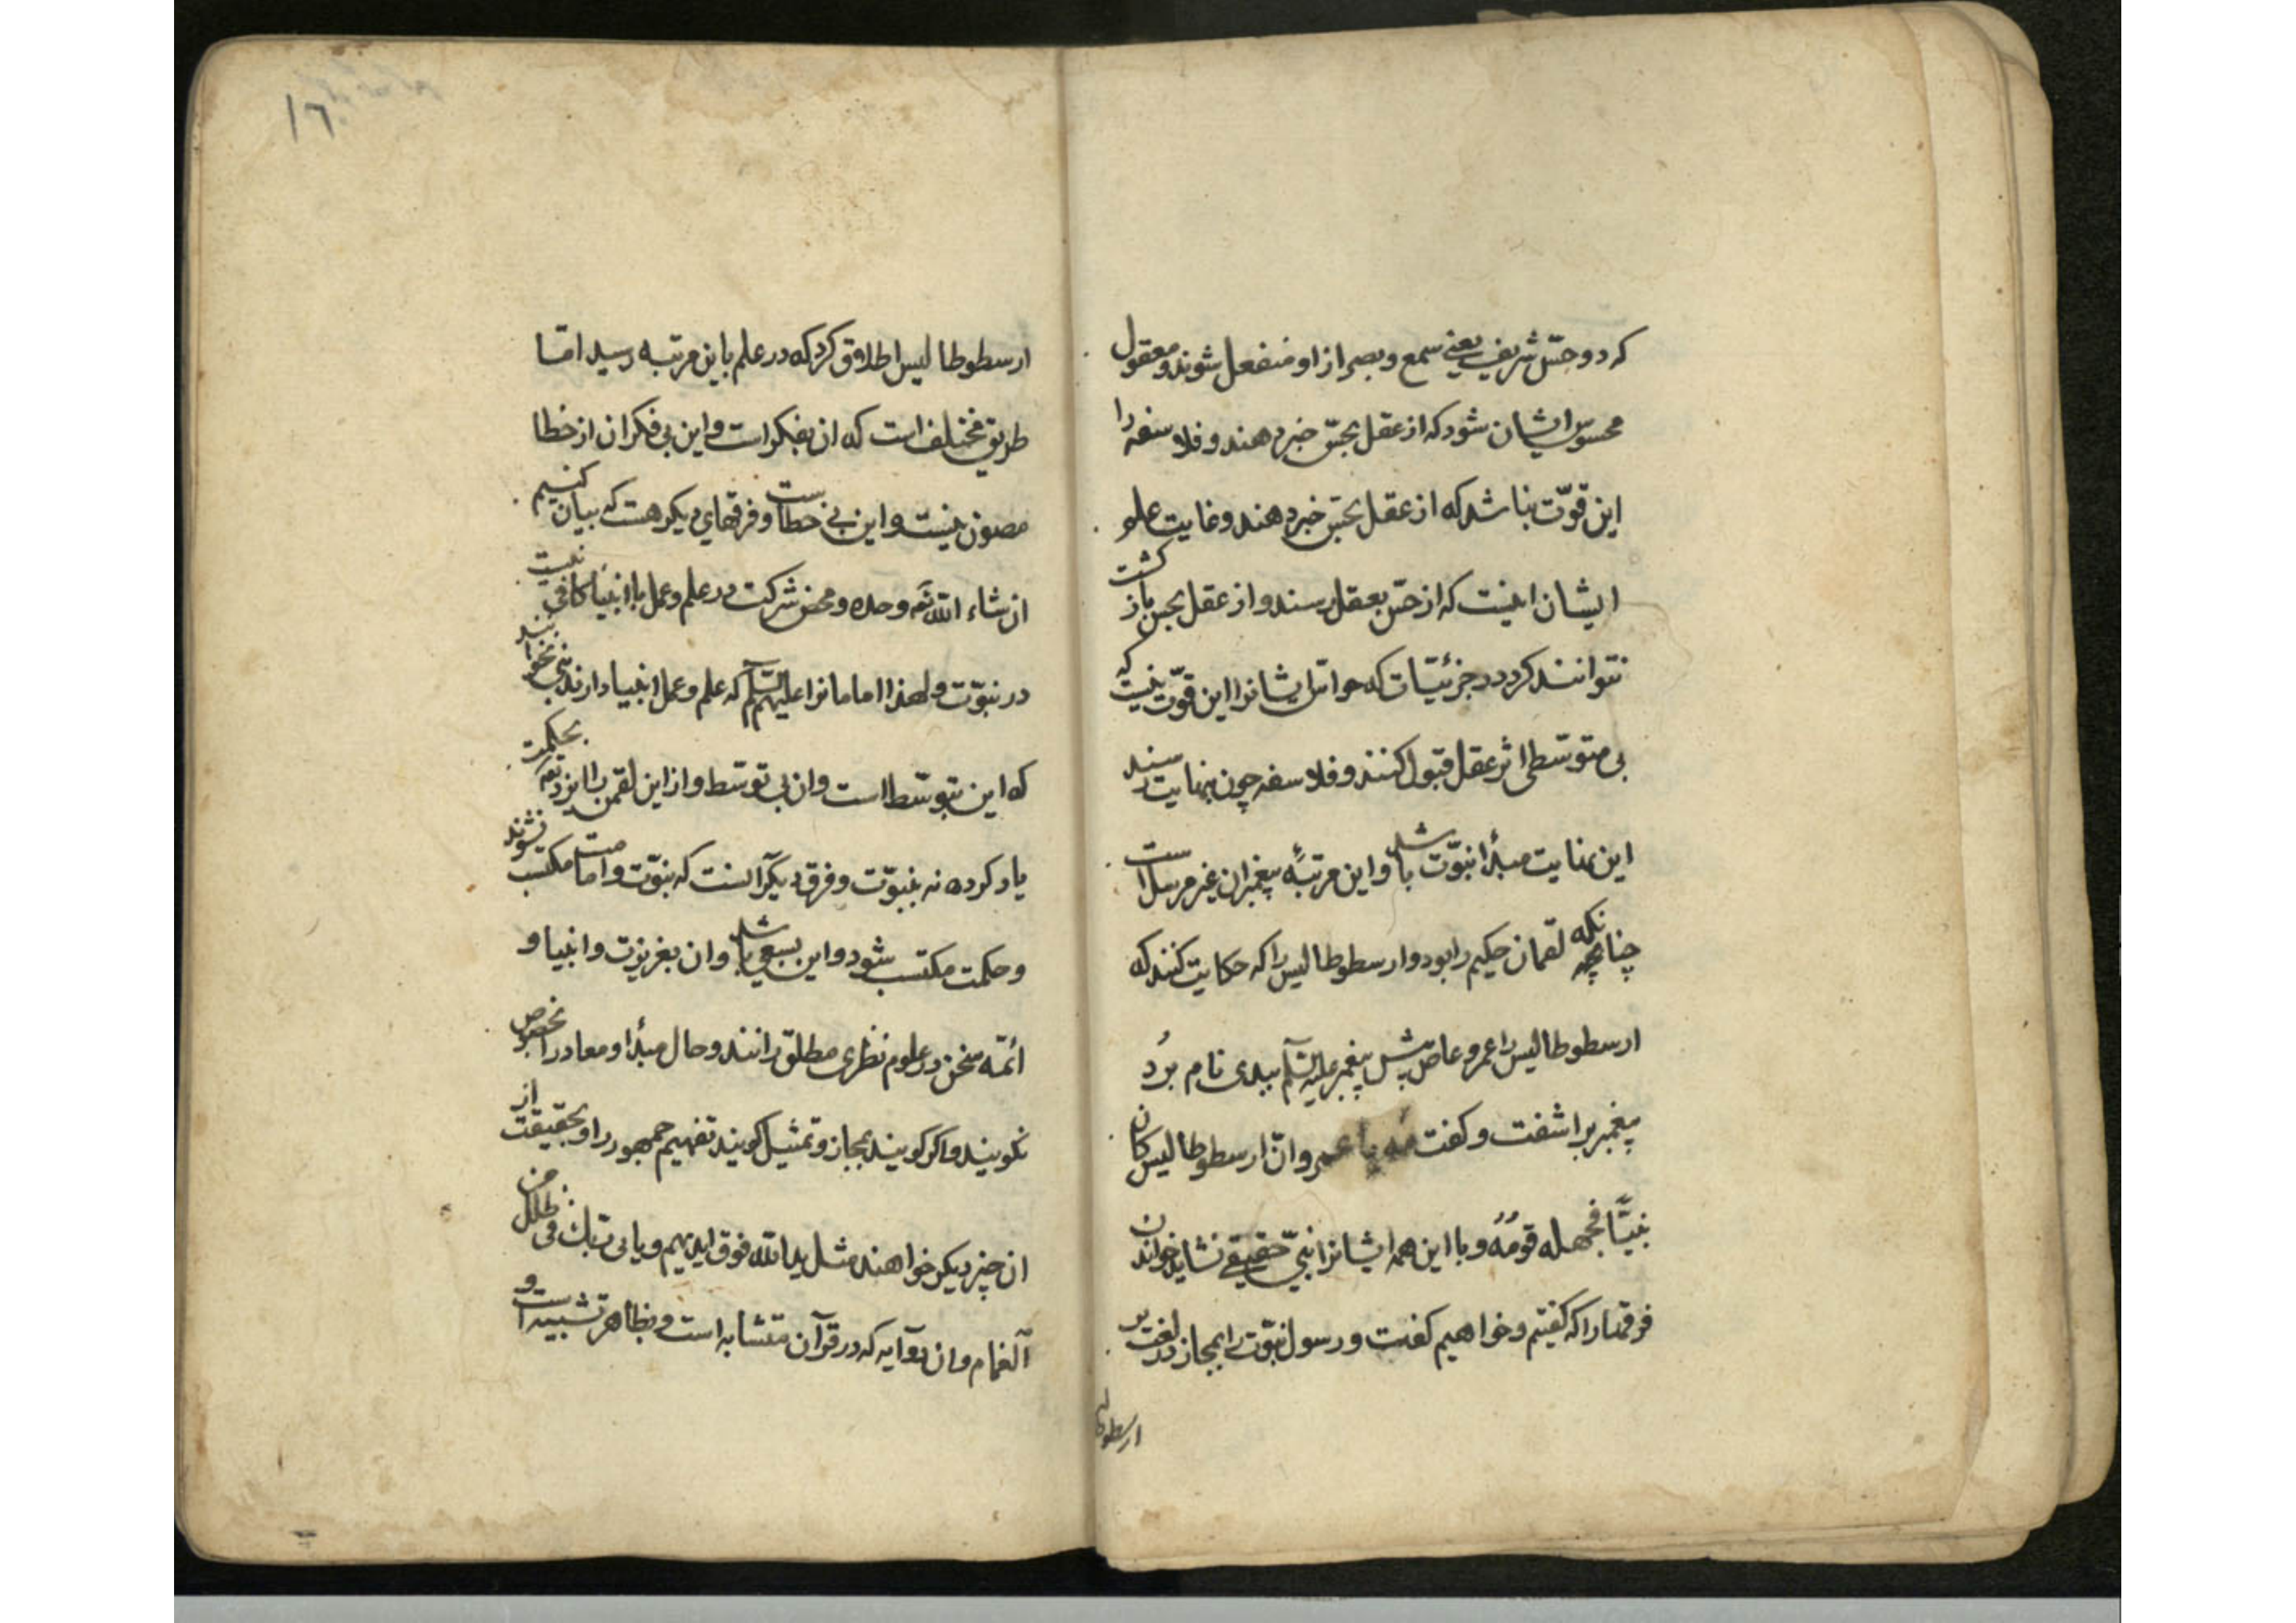 که دو حسّ شریف یعنی سمع و بصر از او منفعل شوند و معقول
محسوس ایشان شود که از عقل بحسّ خبر دهند و فلاسفه را
این قوّت نباشد که از عقل بحسّ خبر دهند و غایت علو
ایشان اینست که از حسّ بعقل رسند و از عقل بحسّ باز کشت
نتوانند کرد در جزئیّات که حواسّ ایشانرا این قوّت نیست که
بی متوسّطی اثر عقل قبول کنند و فلاسفه چون بنهایت رسند
این نهایت مبدأ نبوّت باشد و این مرتبهٔ پیغمبران غیر مرسل است
چنانچه چنانکه لقمان حکیم را بود و ارسطوطالیس را که حکایت کنند که
ارسطوطالیس را عمرو عاص پیش پیغمبر علیه السّلم ببدی نام بُرد
پیغمبر براشفت و کفت مه یا عمرو انّ ارسطوطالیس کان
نبیّاً فجهله قومُهُ و با این همه ایشانرا نبیّ حقیقی نشاید خواندن
فرقها را که کفتیم و خواهیم کفت و رسول نبوّت را بمجاز در لغت بر
ارسطوطا
١٦
ارسطوطالیس اطلاق کرد که در علم باین مرتبه رسید امّا
طریق مختلف است که ان بفکر است و این بی فکر ان از خطا
مصون نیست و این بی خطاست و فرقهای دیکر هست که بیان کنیم
ان شاء الله تعه وحده و محض شرکت در علم و عمل با انبیا کافی نیست
در نبوّت و لهذا امامانرا علیهم السّلم که علم و عمل انبیا دارند نبی نخوانند
که این بتوسّط است و ان بی توسّط و از این لقمن را ایزد تعه بحکمت
یاد کرده نه بنبوّت و فرق دیکر آنست که نبوّت و امامت مکتسب نشوند
و حکمت مکتسب شود و این بسعی باشد و ان بغریزت و انبیا و
ائمّه سخن در علوم نظری مطلق رانند و حال مبدأ و معاد را بخصوص
نکویند و اکر کویند بمجاز و تمثیل کویند تفهیم جمهور را و بحقیقت از
ان چیز دیکر خواهند مثل ید الله فوق ایدیهم و یاتی ربّک فی ظلل من
آلغمام و ان دو آیه که در قرآن متشابه است و بظاهر تشبیه است و